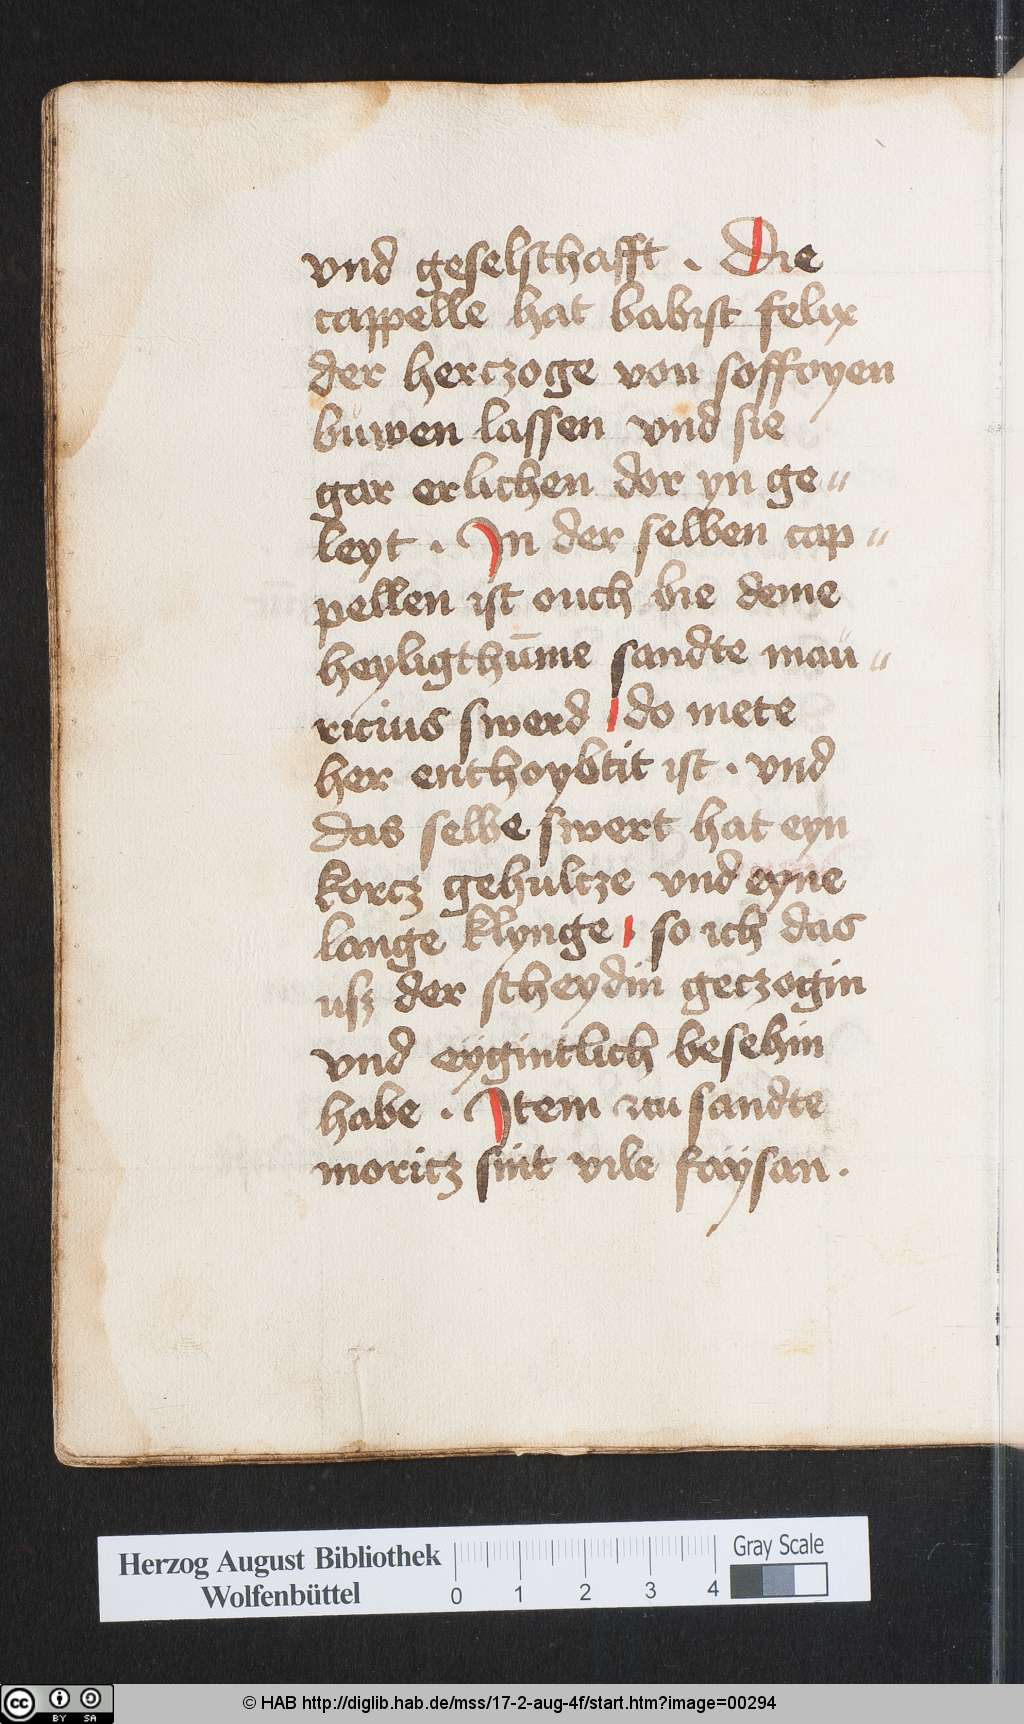 vnd geselschafft . Die
cappelle hat babist felix
der herczoge von soffoyen
buwen lassen vnd sie
gar erlichen dor yn ge〃
leyt . In der selben cap〃
pellen ist ouch bie deme
heyligthūme sandte mau〃
ricius swerd do mete
her enthoybtit ist . vnd
das selbe swert hat eyn
korcz gehultze vnd eyne
lange klynge so ich das
usz der scheydin geczogin
vnd eÿgintlich besehin
habe . Item zcu sandte
moricz sint vile faÿsan .
Herzog August Bibliothek
Wolfenbüttel
0 1 2 3 4
Gray Scale
cc BY SA
© HAB http://diglib.hab.de/mss/17-2-aug-4f/start.htm?image=00294